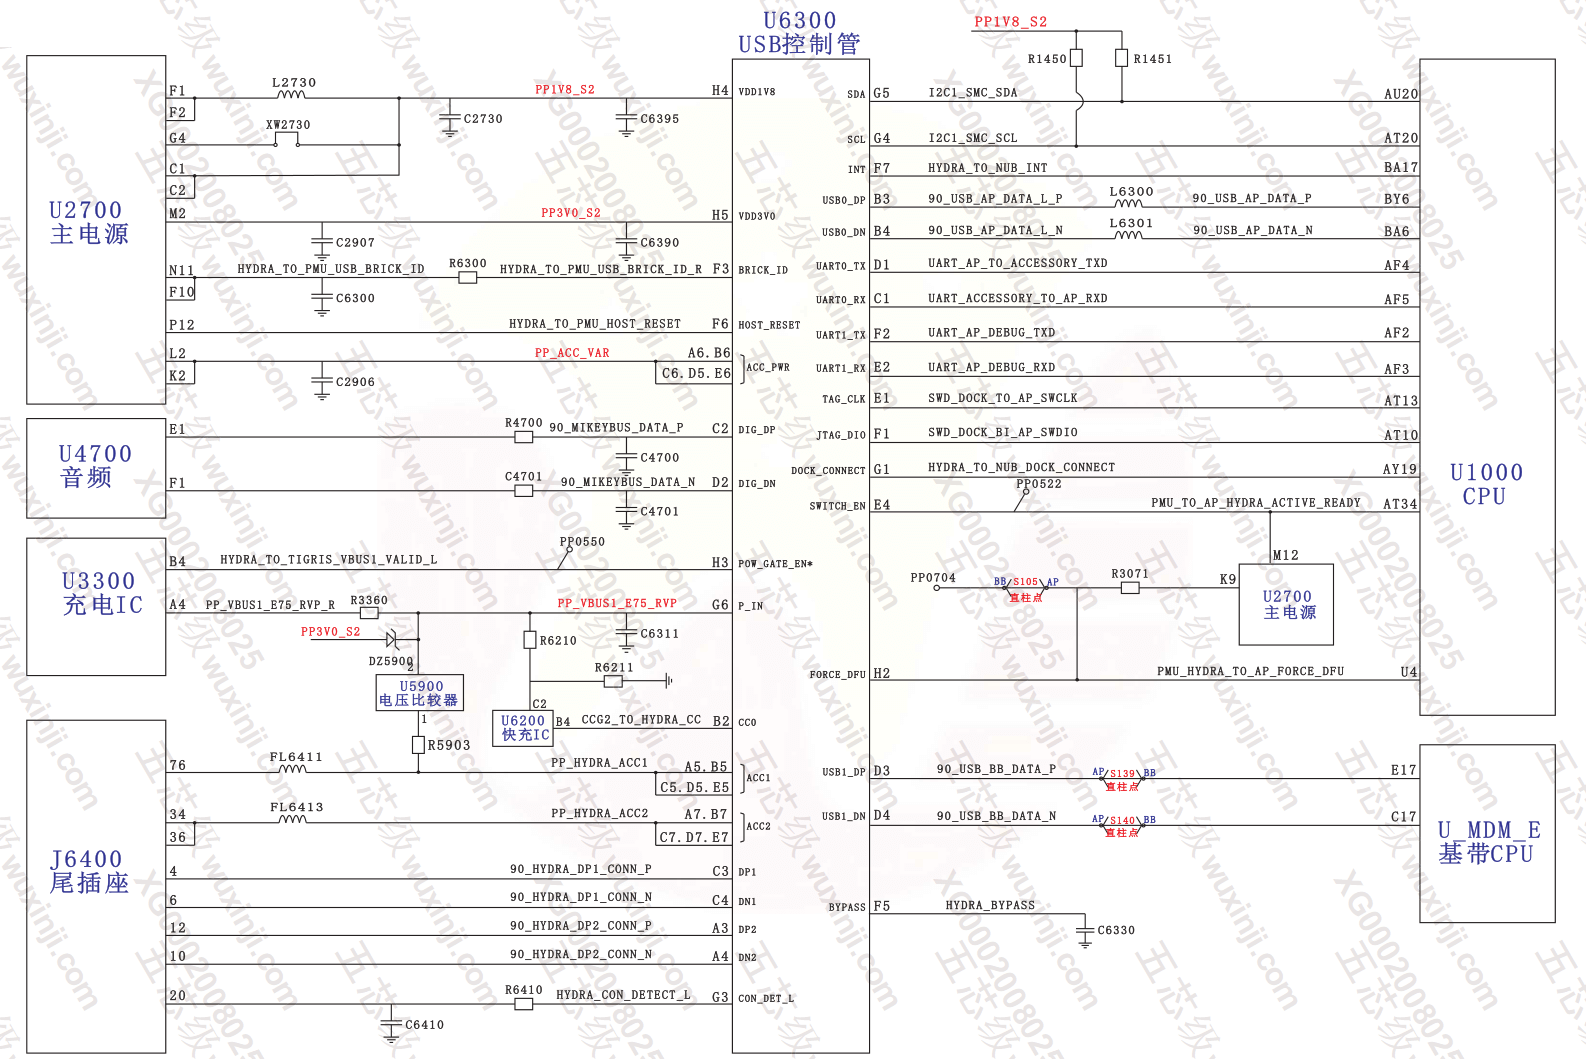 U6300
USB控制管
PP1V8_S2
R1450
R1451
U2700
主电源
F1
L2730
PP1V8_S2
H4
VDD1V8
F2
C2730
C6395
G4
XW2730
C1
C2
M2
PP3V0_S2
H5
VDD3V0
C2907
C6390
N11
HYDRA_TO_PMU_USB_BRICK_ID
R6300
HYDRA_TO_PMU_USB_BRICK_ID_R
F3
BRICK_ID
F10
C6300
P12
HYDRA_TO_PMU_HOST_RESET
F6
HOST_RESET
L2
PP_ACC_VAR
A6. B6
K2
C2906
C6. D5. E6
ACC_PWR
U4700
音频
E1
R4700
90_MIKEYBUS_DATA_P
C2
DIG_DP
C4700
F1
C4701
90_MIKEYBUS_DATA_N
D2
DIG_DN
C4701
U3300
充电IC
B4
HYDRA_TO_TIGRIS_VBUS1_VALID_L
PP0550
H3
POW_GATE_EN*
A4
PP_VBUS1_E75_RVP_R
R3360
PP_VBUS1_E75_RVP
G6
P_IN
PP3V0_S2
DZ5900
2
R6210
C6311
R6211
U5900
电压比较器
1
R5903
C2
U6200
快充IC
B4
CCG2_TO_HYDRA_CC
B2
CC0
J6400
尾插座
76
FL6411
PP_HYDRA_ACC1
A5. B5
C5. D5. E5
ACC1
34
FL6413
PP_HYDRA_ACC2
A7. B7
36
C7. D7. E7
ACC2
4
90_HYDRA_DP1_CONN_P
C3
DP1
6
90_HYDRA_DP1_CONN_N
C4
DN1
12
90_HYDRA_DP2_CONN_P
A3
DP2
10
90_HYDRA_DP2_CONN_N
A4
DN2
20
R6410
HYDRA_CON_DETECT_L
G3
CON_DET_L
C6410
SDA
G5
I2C1_SMC_SDA
AU20
SCL
G4
I2C1_SMC_SCL
AT20
INT
F7
HYDRA_TO_NUB_INT
BA17
USB0_DP
B3
90_USB_AP_DATA_L_P
L6300
90_USB_AP_DATA_P
BY6
USB0_DN
B4
90_USB_AP_DATA_L_N
L6301
90_USB_AP_DATA_N
BA6
UART0_TX
D1
UART_AP_TO_ACCESSORY_TXD
AF4
UART0_RX
C1
UART_ACCESSORY_TO_AP_RXD
AF5
UART1_TX
F2
UART_AP_DEBUG_TXD
AF2
UART1_RX
E2
UART_AP_DEBUG_RXD
AF3
TAG_CLK
E1
SWD_DOCK_TO_AP_SWCLK
AT13
JTAG_DIO
F1
SWD_DOCK_BI_AP_SWDIO
AT10
DOCK_CONNECT
G1
HYDRA_TO_NUB_DOCK_CONNECT
AY19
PP0522
SWITCH_EN
E4
PMU_TO_AP_HYDRA_ACTIVE_READY
AT34
U1000
CPU
M12
PP0704
BB
S105
AP
直柱点
R3071
K9
U2700
主电源
FORCE_DFU
H2
PMU_HYDRA_TO_AP_FORCE_DFU
U4
USB1_DP
D3
90_USB_BB_DATA_P
AP
S139
BB
直柱点
E17
USB1_DN
D4
90_USB_BB_DATA_N
AP
S140
BB
直柱点
C17
U_MDM_E
基带CPU
BYPASS
F5
HYDRA_BYPASS
C6330
五芯级 wuxinji.com
XG0002008025